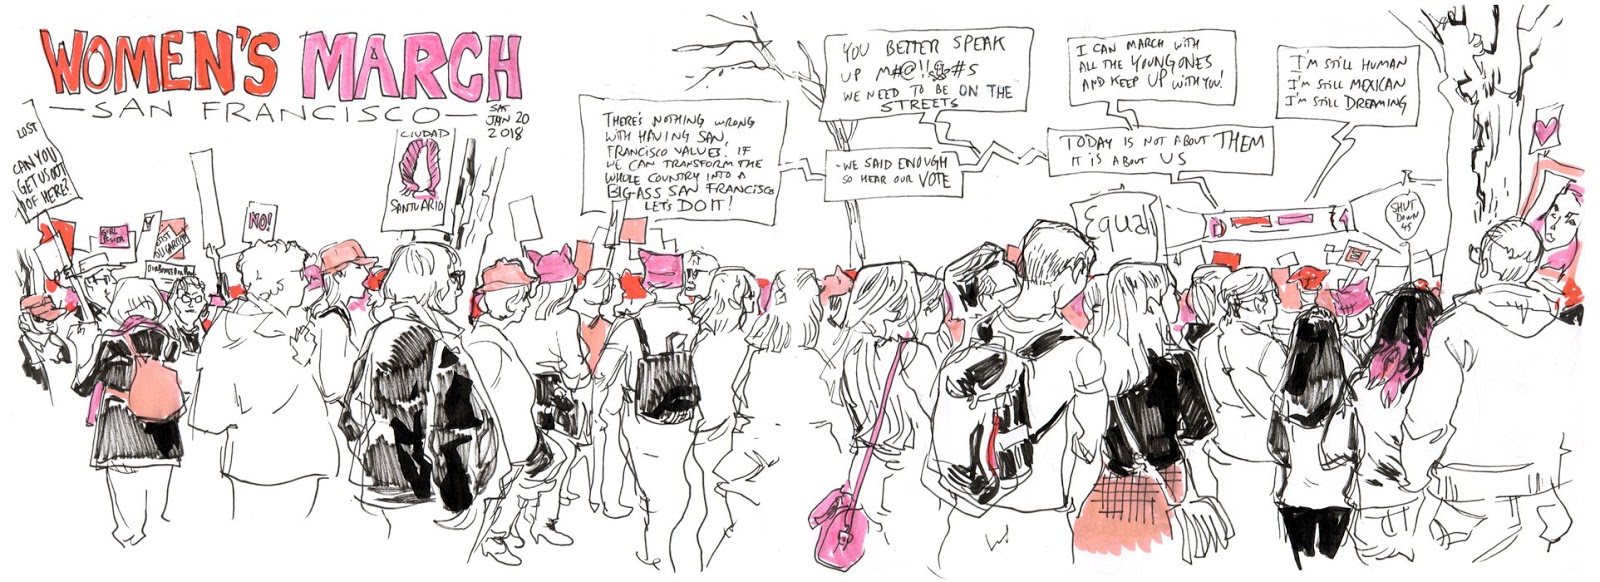 WOMEN'S MARCH
SAN FRANCISCO
SAT
JAN 20
2018
LOST
CAN YOU
GET US OUT
OF HERE?
GIRL
POWER
NO!
CIUDAD
SANTUARIO
THERE'S NOTHING WRONG
WITH HAVING SAN
FRANCISCO VALUES. IF
WE CAN TRANSFORM THE
WHOLE COUNTRY INTO A
BIG-ASS SAN FRANCISCO
LET'S DO IT!
YOU BETTER SPEAK
UP M#@!!&#S
WE NEED TO BE ON THE
STREETS
WE SAID ENOUGH
SO HEAR OUR VOTE
I CAN MARCH WITH
ALL THE YOUNG ONES
AND KEEP UP WITH YOU!
TODAY IS NOT ABOUT THEM
IT IS ABOUT US
I'M STILL HUMAN
I'M STILL MEXICAN
I'M STILL DREAMING
Equali
SHUT
DOWN
45